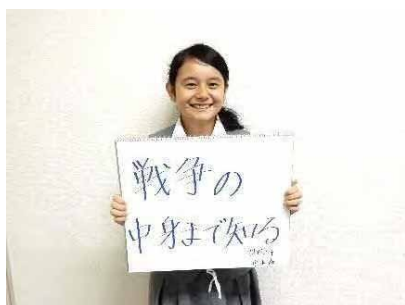 戦争の
中身まで知る